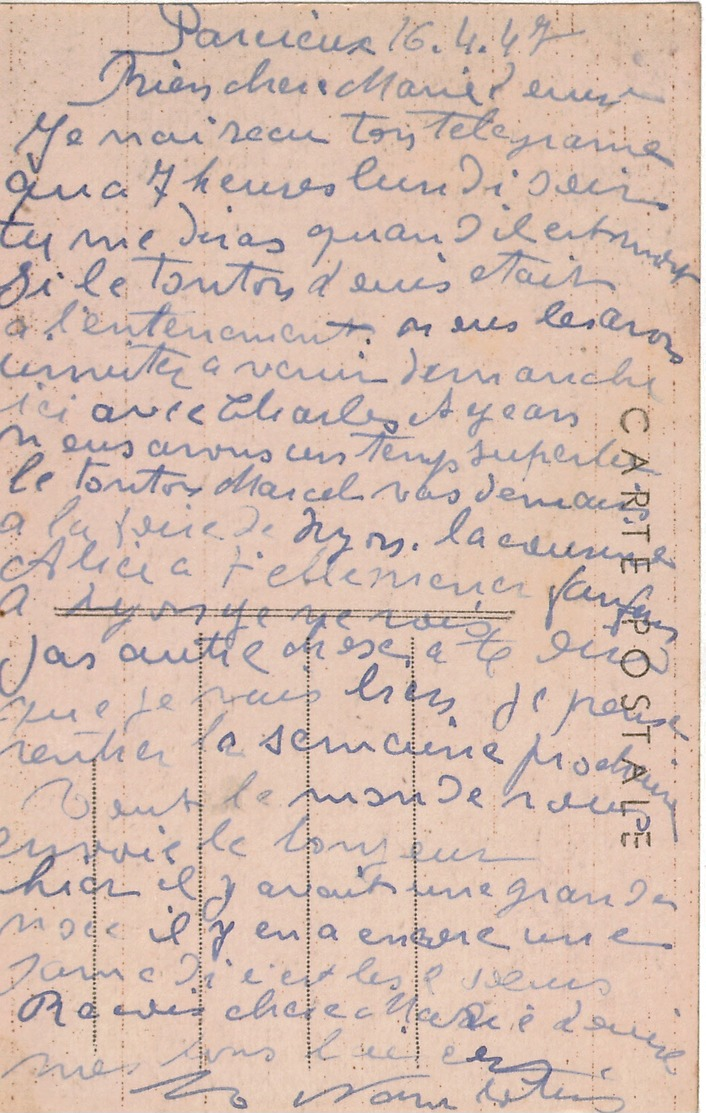 Parcieux 16.4.47
Bien chere Marie Denise
Je nai recu ton telegrame
qua 7 heures lundi soir
tu me diras quand il est mort
Si le tonton denis etait
a l'enterement. nous les avons
invités a venir dimanche
ici avec Charles
nous avons un temps superbe
le tonton Marcel vas demain
a la foire de Lyon. la cousine
Alice a
A Lyon je ne vois
pas autre chose a te dire
que je vais bien je pense
rentrer la semaine prochaine
tout le monde vous
envoie le bonjour
hier il y avait une grande
noce il y en a encore une
samedi c'est les
Recois chere Marie denise
mes bons baisers
CARTE POSTALE